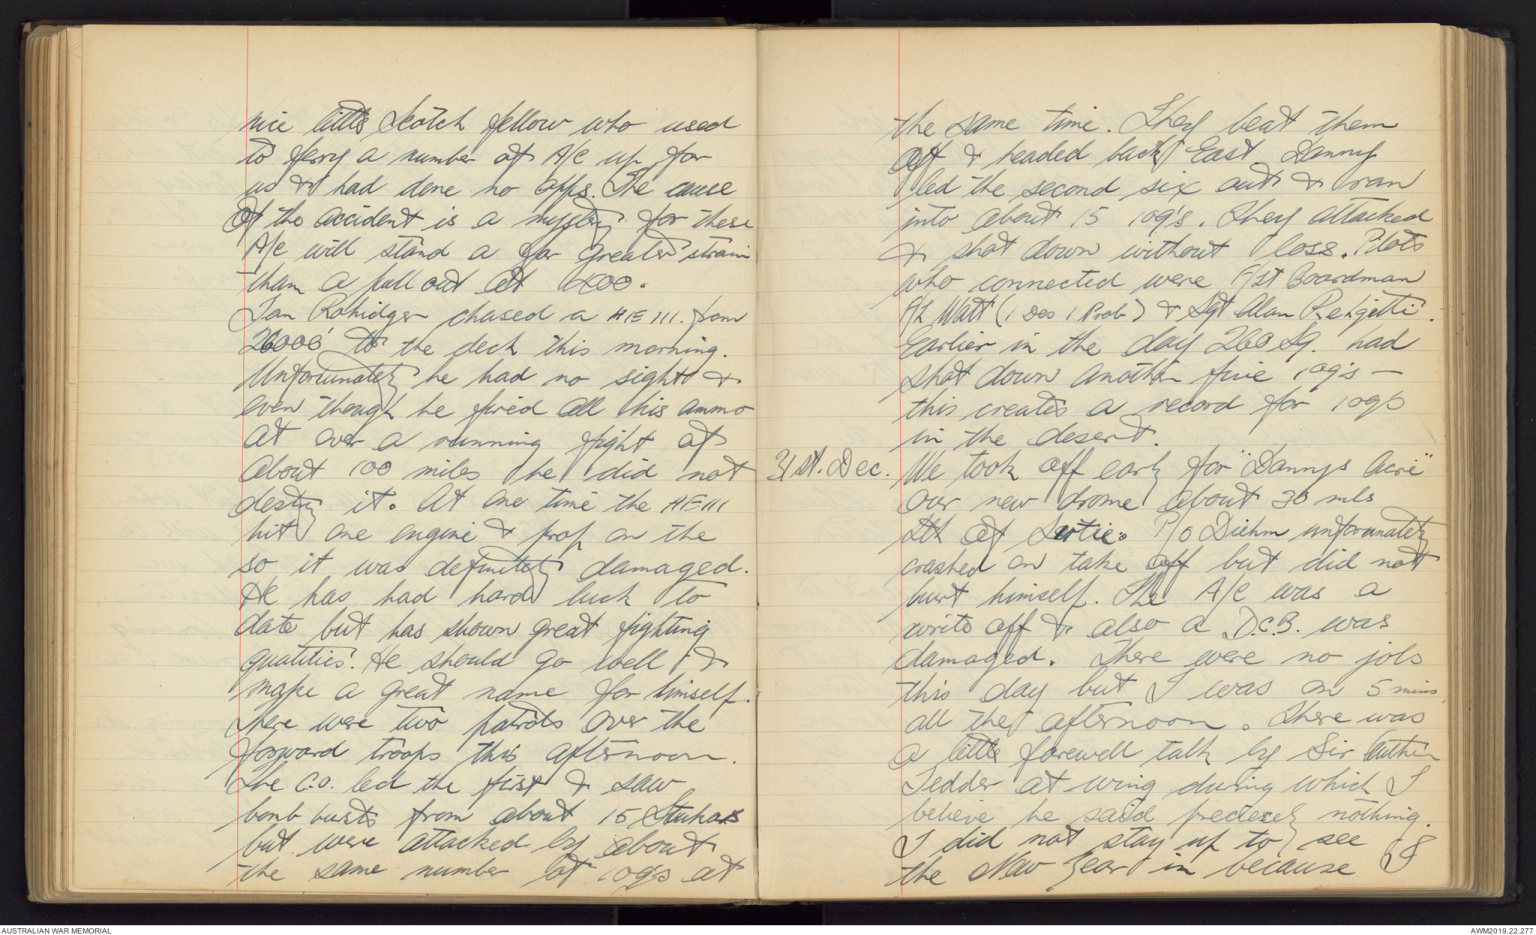 nice little Scotch fellow who used
to ferry a number of A/C up for
us & had done no opps. The cause
of the accident is a mystery for these
A/C will stand a far greater strain
than a pull out at 400.
Ian chased a HE 111. from
26000' to the deck this morning.
Unfortunately he had no sight &
even though he fired all his ammo
at over a running fight of
about 100 miles he did not
destroy it. At one time the HE 111
hit one engine & prop on the
so it was definitely damaged.
He has had hard luck to
date but has shown great fighting
qualities. He should go well &
make a great name for himself.
There were two patrols over the
forward troops this afternoon.
The C.O. led the first & saw
bomb bursts from about 15 Stukas
but were attacked by about
the same number of 109s at
the same time. They beat them
off & headed back East. Danny
led the second six out & ran
into about 15 109's. They attacked
& shot down without loss. Pilots
who connected were F/St Boardman
F/L Watt (1 Des 1 Prob) & Sgt Alan
Earlier in the day 260 Sq. had
shot down another five 109's —
this creates a record for 109s
in the desert.
31st. Dec. We took off early for "Dannys Acre"
our new drome about 30 mls
Sth of Sirtie. P/O Diehm unfortunately
crashed on take off but did not
hurt himself. The A/C was a
write off & also a D.C.B. was
damaged. There were no jobs
this day but I was on 5 mins
all the afternoon. There was
a little farewell talk by Sir Authur
Tedder at wing during which I
believe he said precisely nothing.
I did not stay up to see
the New Year in because I
AUSTRALIAN WAR MEMORIAL
AWM2019.22.277